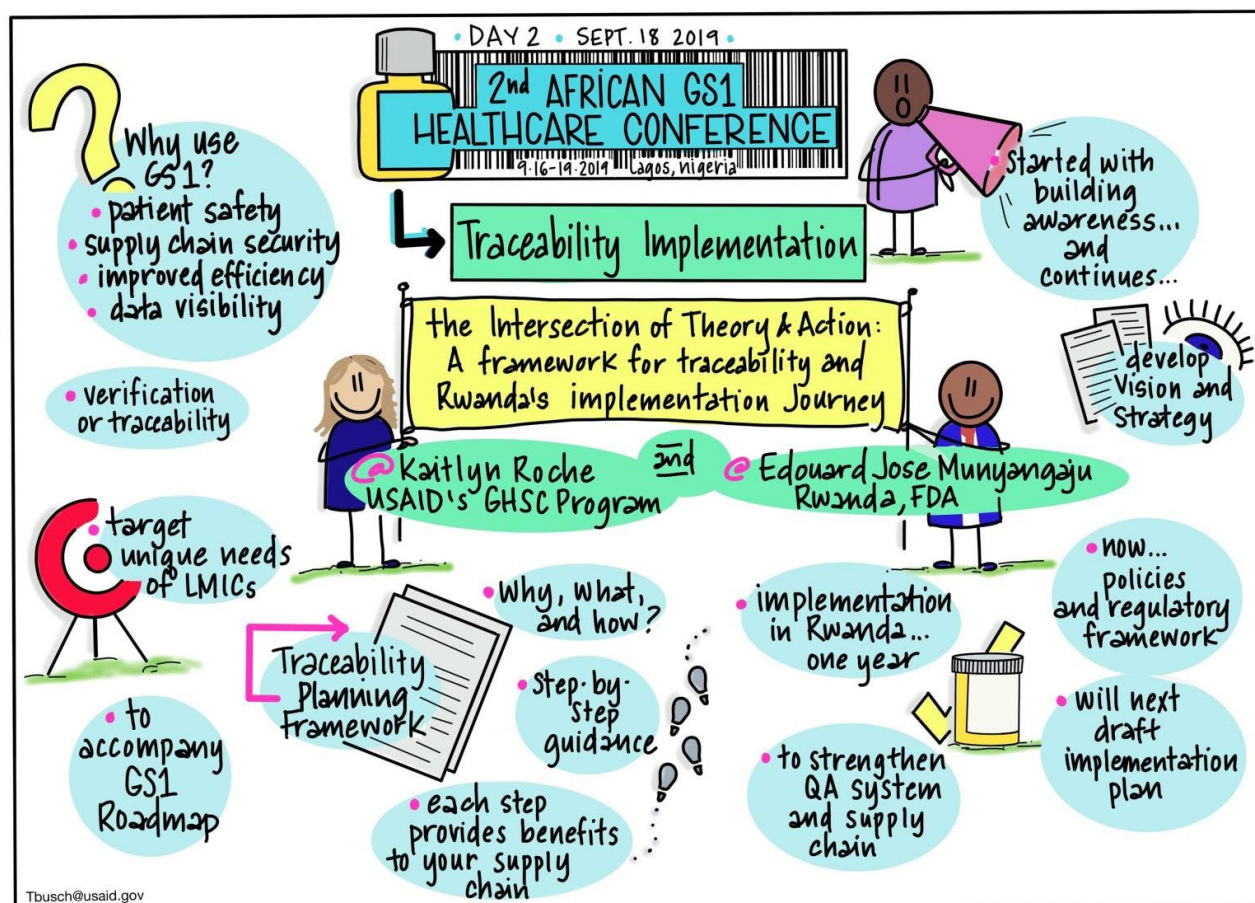 • DAY 2 • SEPT. 18 2019 •
2nd AFRICAN GS1
HEALTHCARE CONFERENCE
9.16-19.2019 Lagos, nigeria
Traceability Implementation
the Intersection of Theory & Action:
A framework for traceability and
Rwanda's implementation Journey
@ Kaitlyn Roche
USAID's GHSC Program
and
@ Edouard Jose Munyangaju
Rwanda, FDA
Why use
GS1?
• patient safety
• supply chain security
• improved efficiency
• data visibility
• verification
or traceability
• target
unique needs
of LMICs
• to
accompany
GS1
Roadmap
Traceability
Planning
Framework
• Why, what,
and how?
• Step-by-
step
guidance
• each step
provides benefits
to your supply
chain
• started with
building
awareness...
and
continues...
develop
Vision and
Strategy
• implementation
in Rwanda...
one year
• to strengthen
QA system
and supply
chain
• now...
policies
and regulatory
framework
• will next
draft
implementation
plan
Tbusch@usaid.gov